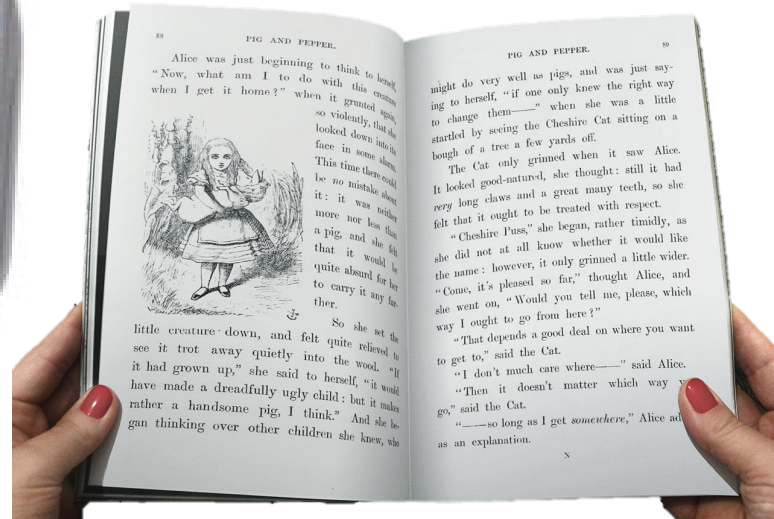 88
PIG AND PEPPER.
Alice was just beginning to think to herself,
“Now, what am I to do with this creature
when I get it home?” when it grunted again,
so violently, that she
looked down into its
face in some alarm.
This time there could
be no mistake about
it: it was neither
more nor less than
a pig, and she felt
that it would be
quite absurd for her
to carry it any fur-
ther.
So she set the
little creature down, and felt quite relieved to
see it trot away quietly into the wood. “If
it had grown up,” she said to herself, “it would
have made a dreadfully ugly child: but it makes
rather a handsome pig, I think.” And she be-
gan thinking over other children she knew, who
PIG AND PEPPER.
89
might do very well as pigs, and was just say-
ing to herself, “if one only knew the right way
to change them——” when she was a little
startled by seeing the Cheshire Cat sitting on a
bough of a tree a few yards off.
The Cat only grinned when it saw Alice.
It looked good-natured, she thought: still it had
very long claws and a great many teeth, so she
felt that it ought to be treated with respect.
“Cheshire Puss,” she began, rather timidly, as
she did not at all know whether it would like
the name: however, it only grinned a little wider.
“Come, it's pleased so far,” thought Alice, and
she went on, “Would you tell me, please, which
way I ought to go from here?”
“That depends a good deal on where you want
to get to,” said the Cat.
“I don't much care where——” said Alice.
“Then it doesn't matter which way
go,” said the Cat.
“——so long as I get somewhere,” Alice
as an explanation.
N